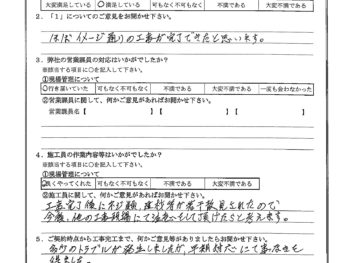 大変満足している 満足している 可もなく不可もなく 不満である 大変不満である
2．「1」についてのご意見をお聞かせ下さい。
ほぼイメージ通りの工事が完了できたと思います。
3．弊社の営業課員の対応はいかがでしたか？
※該当する項目に○を記入して下さい。
①現場管理について
行き届いていた 可もなく不可もなく 不満である 大変不満である 一度も会わなかった
②営業課員に関して、何かご意見があればお聞かせ下さい。
営業課員名【 】【 】
4．施工員の作業内容等はいかがでしたか？
※該当する項目に○を記入して下さい。
①現場管理について
良くやってくれた 可もなく不可もなく 不満である 大変不満である
②施工員に関して、何かご意見があればお聞かせ下さい。
工事完了後にネジ類、座金等が若干散見されたので
今後、他の工事現場にて注意をして頂けたらと考えます。
5．ご契約時点から工事完工まで、何かご意見等ありましたらお聞かせ下さい。
多少のトラブルが発生しましたが、早期対応にて